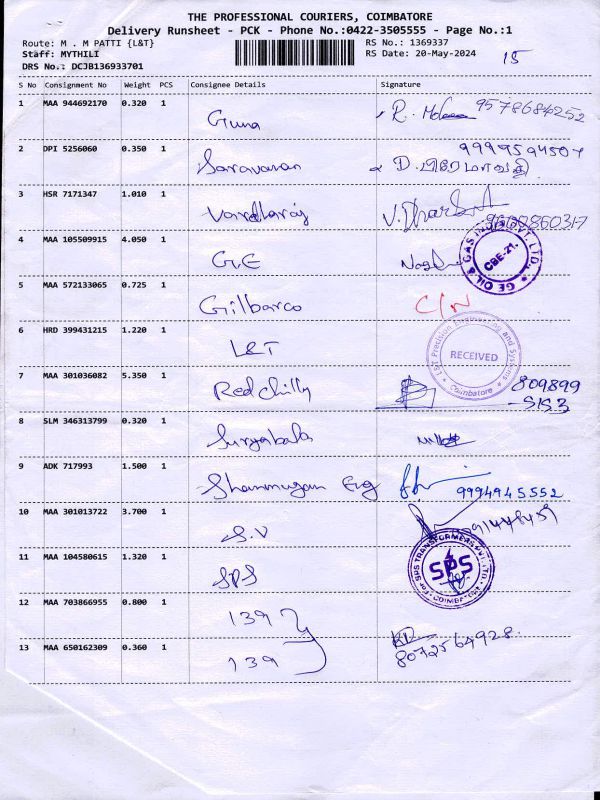 THE PROFESSIONAL COURIERS, COIMBATORE
Delivery Runsheet - PCK - Phone No.:0422-3505555 - Page No.:1
Route: M . M PATTI {L&T} RS No.: 1369337
Staff: MYTHILI RS Date: 20-May-2024 15
DRS No.: DCJB136933701
S No Consignment No Weight PCS Consignee Details Signature
1 MAA 944692170 0.320 1 Guna R. 9578684252
2 DPI 5256060 0.350 1 Saravanan D. பிரேமாவதி
3 HSR 7171347 1.010 1 Vardharaj
4 MAA 105509915 4.050 1 G.E GE OIL & GAS INDIA PVT. LTD., CBE-21.
5 MAA 572133065 0.725 1 Gilbarco C/N
6 HRD 399431215 1.220 1 L&T L&T Precision Engineering and Systems RECEIVED Coimbatore
7 MAA 301036082 5.350 1 Redchilly 809899
5153
8 SLM 346313799 0.320 1 Suryabala
9 ADK 717993 1.500 1 Shanmugan Eng 9994945552
10 MAA 301013722 3.700 1 S.V
11 MAA 104580615 1.320 1 SPS For SPS TRANSFORMERS PVT. LTD. SPS COIMBATORE
12 MAA 703866955 0.800 1 139
13 MAA 650162309 0.360 1 139 8072564928